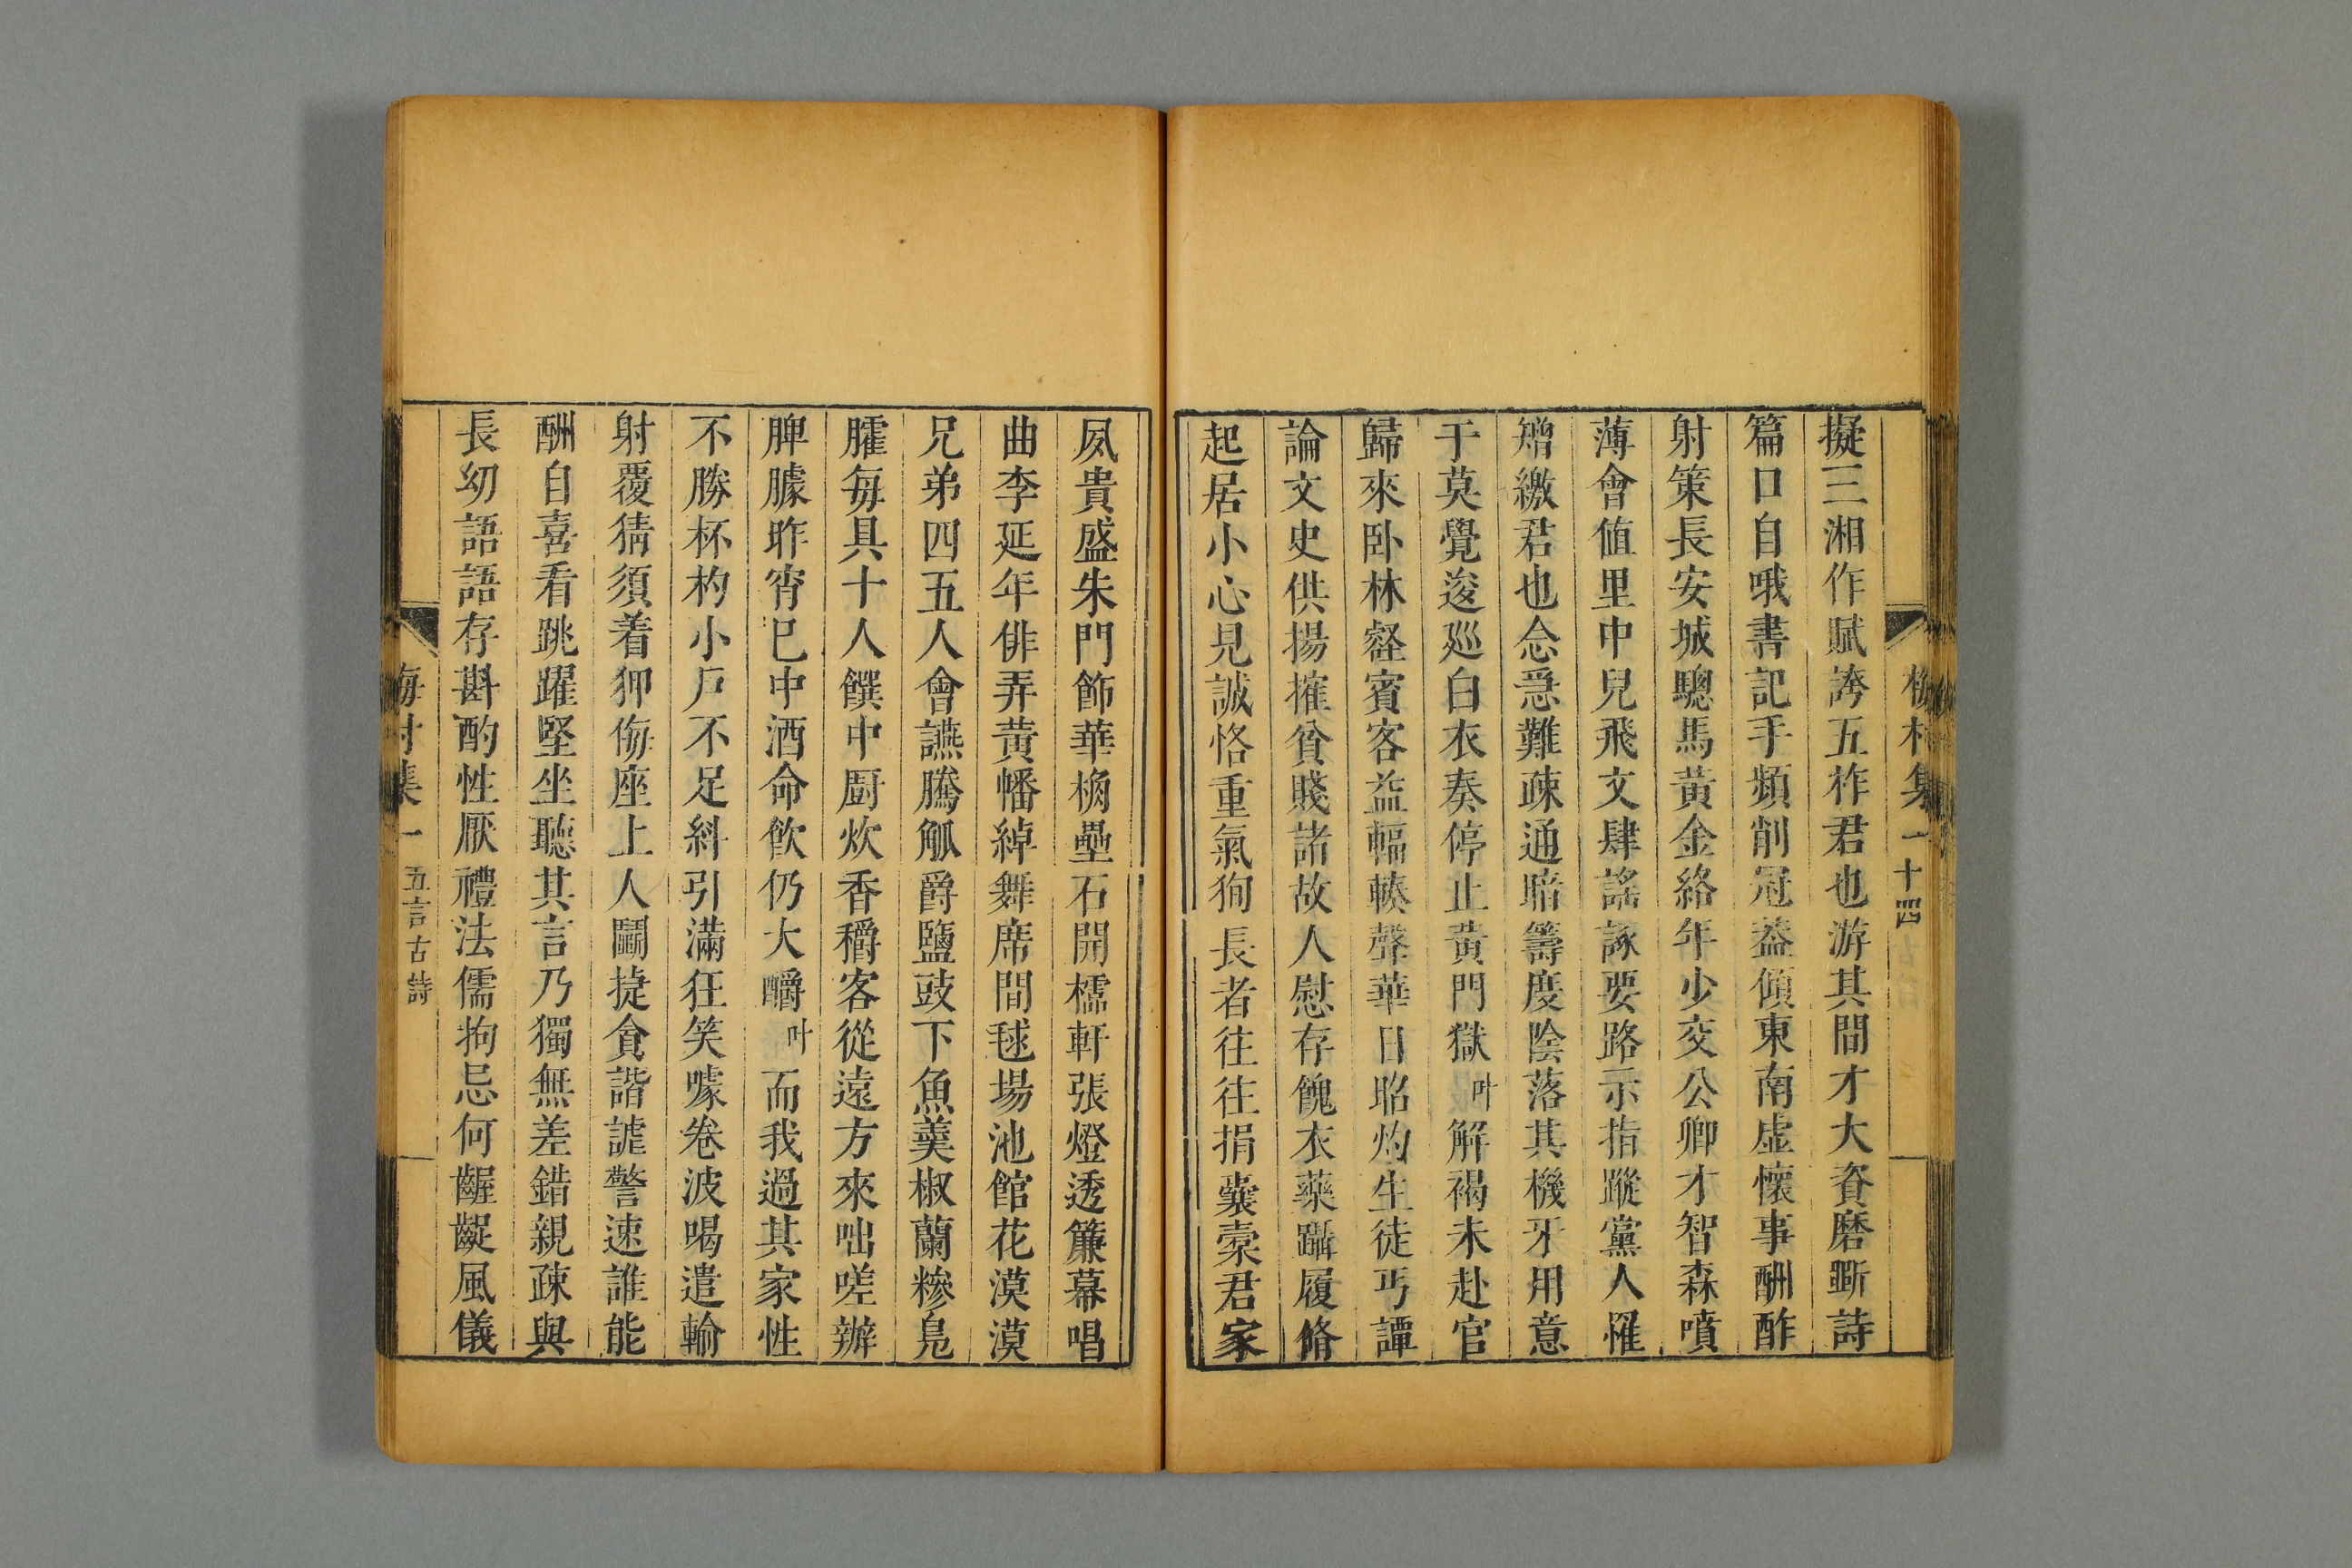 梅村集一 十四
擬三湘作賦誇五柞君也游其間才大資磨斲詩
篇口自哦書記手頻削冠葢傾東南虛懷事酬酢
射策長安城驄馬黃金絡年少交公卿才智森噴
薄會值里中兒飛文肆謠諑要路示指蹤黨人罹
矰繳君也念急難疎通暗籌度陰落其機牙用意
于莫覺逡巡白衣奏停止黃門獄叶解褐未赴官
歸來卧林壑賓客益輻輳聲華日昭灼生徒丐譚
論文史供揚搉貧賤諸故人慰存餽衣藥躡履脩
起居小心見誠恪重氣狥長者往往捐囊橐君家
夙貴盛朱門飾華桷壘石開櫺軒張燈透簾幕唱
曲李延年俳弄黃幡綽舞席間毬場池館花漠漠
兄弟四五人會讌騰觚爵鹽豉下魚羮椒蘭糝鳬
臛每具十人饌中厨炊香穱客從遠方來咄嗟辦
脾臄昨宵已中酒命飲仍大釂叶而我過其家性
不勝杯杓小戶不足糾引滿狂笑噱卷波喝遣輸
射覆猜須着狎侮座上人鬭捷貪諧謔警速誰能
酬自喜看跳躍堅坐聽其言乃獨無差錯親疎與
長幼語語存斟酌性厭禮法儒拘忌何齷齪風儀
梅村集一 五言古詩